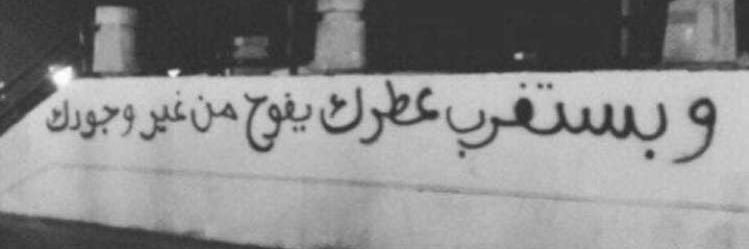 وبستغرب عطرك يفوح من غير وجودك